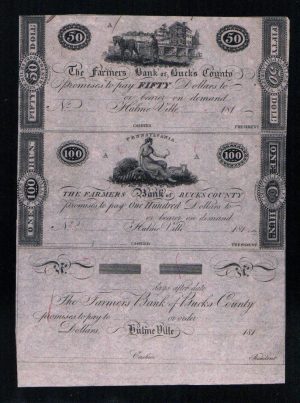 50
50
FIFTY
DOLL
FIFTY
DOLL
A
A
The Farmers Bank of Bucks County
promises to pay FIFTY Dollars to
or bearer on demand
No
Hulme Ville
181
CASHIER
PRESIDENT
PENNSYLVANIA
100
100
A
A
ONE
100
HUN
ONE
C
HUN
THE FARMERS Bank of BUCKS COUNTY
promises to pay One Hundred Dollars to
or bearer on demand
No
Hulme Ville
181
CASHIER
PRESIDENT
Days after date
The Farmers Bank of Bucks County
promises to pay to
or order
Dollars
Hulme Ville
181
Cashier
President